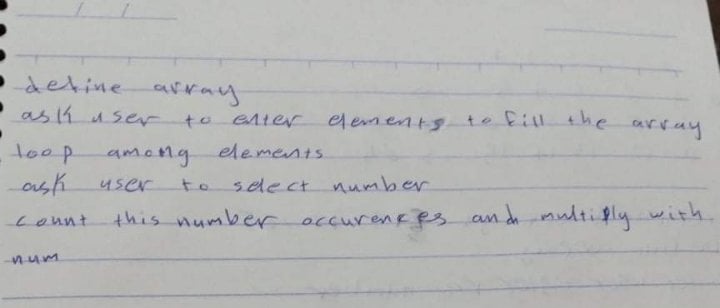 define array
ask user to enter elements to fill the array
loop among elements
ask user to select number
count this number occurences and multiply with
num